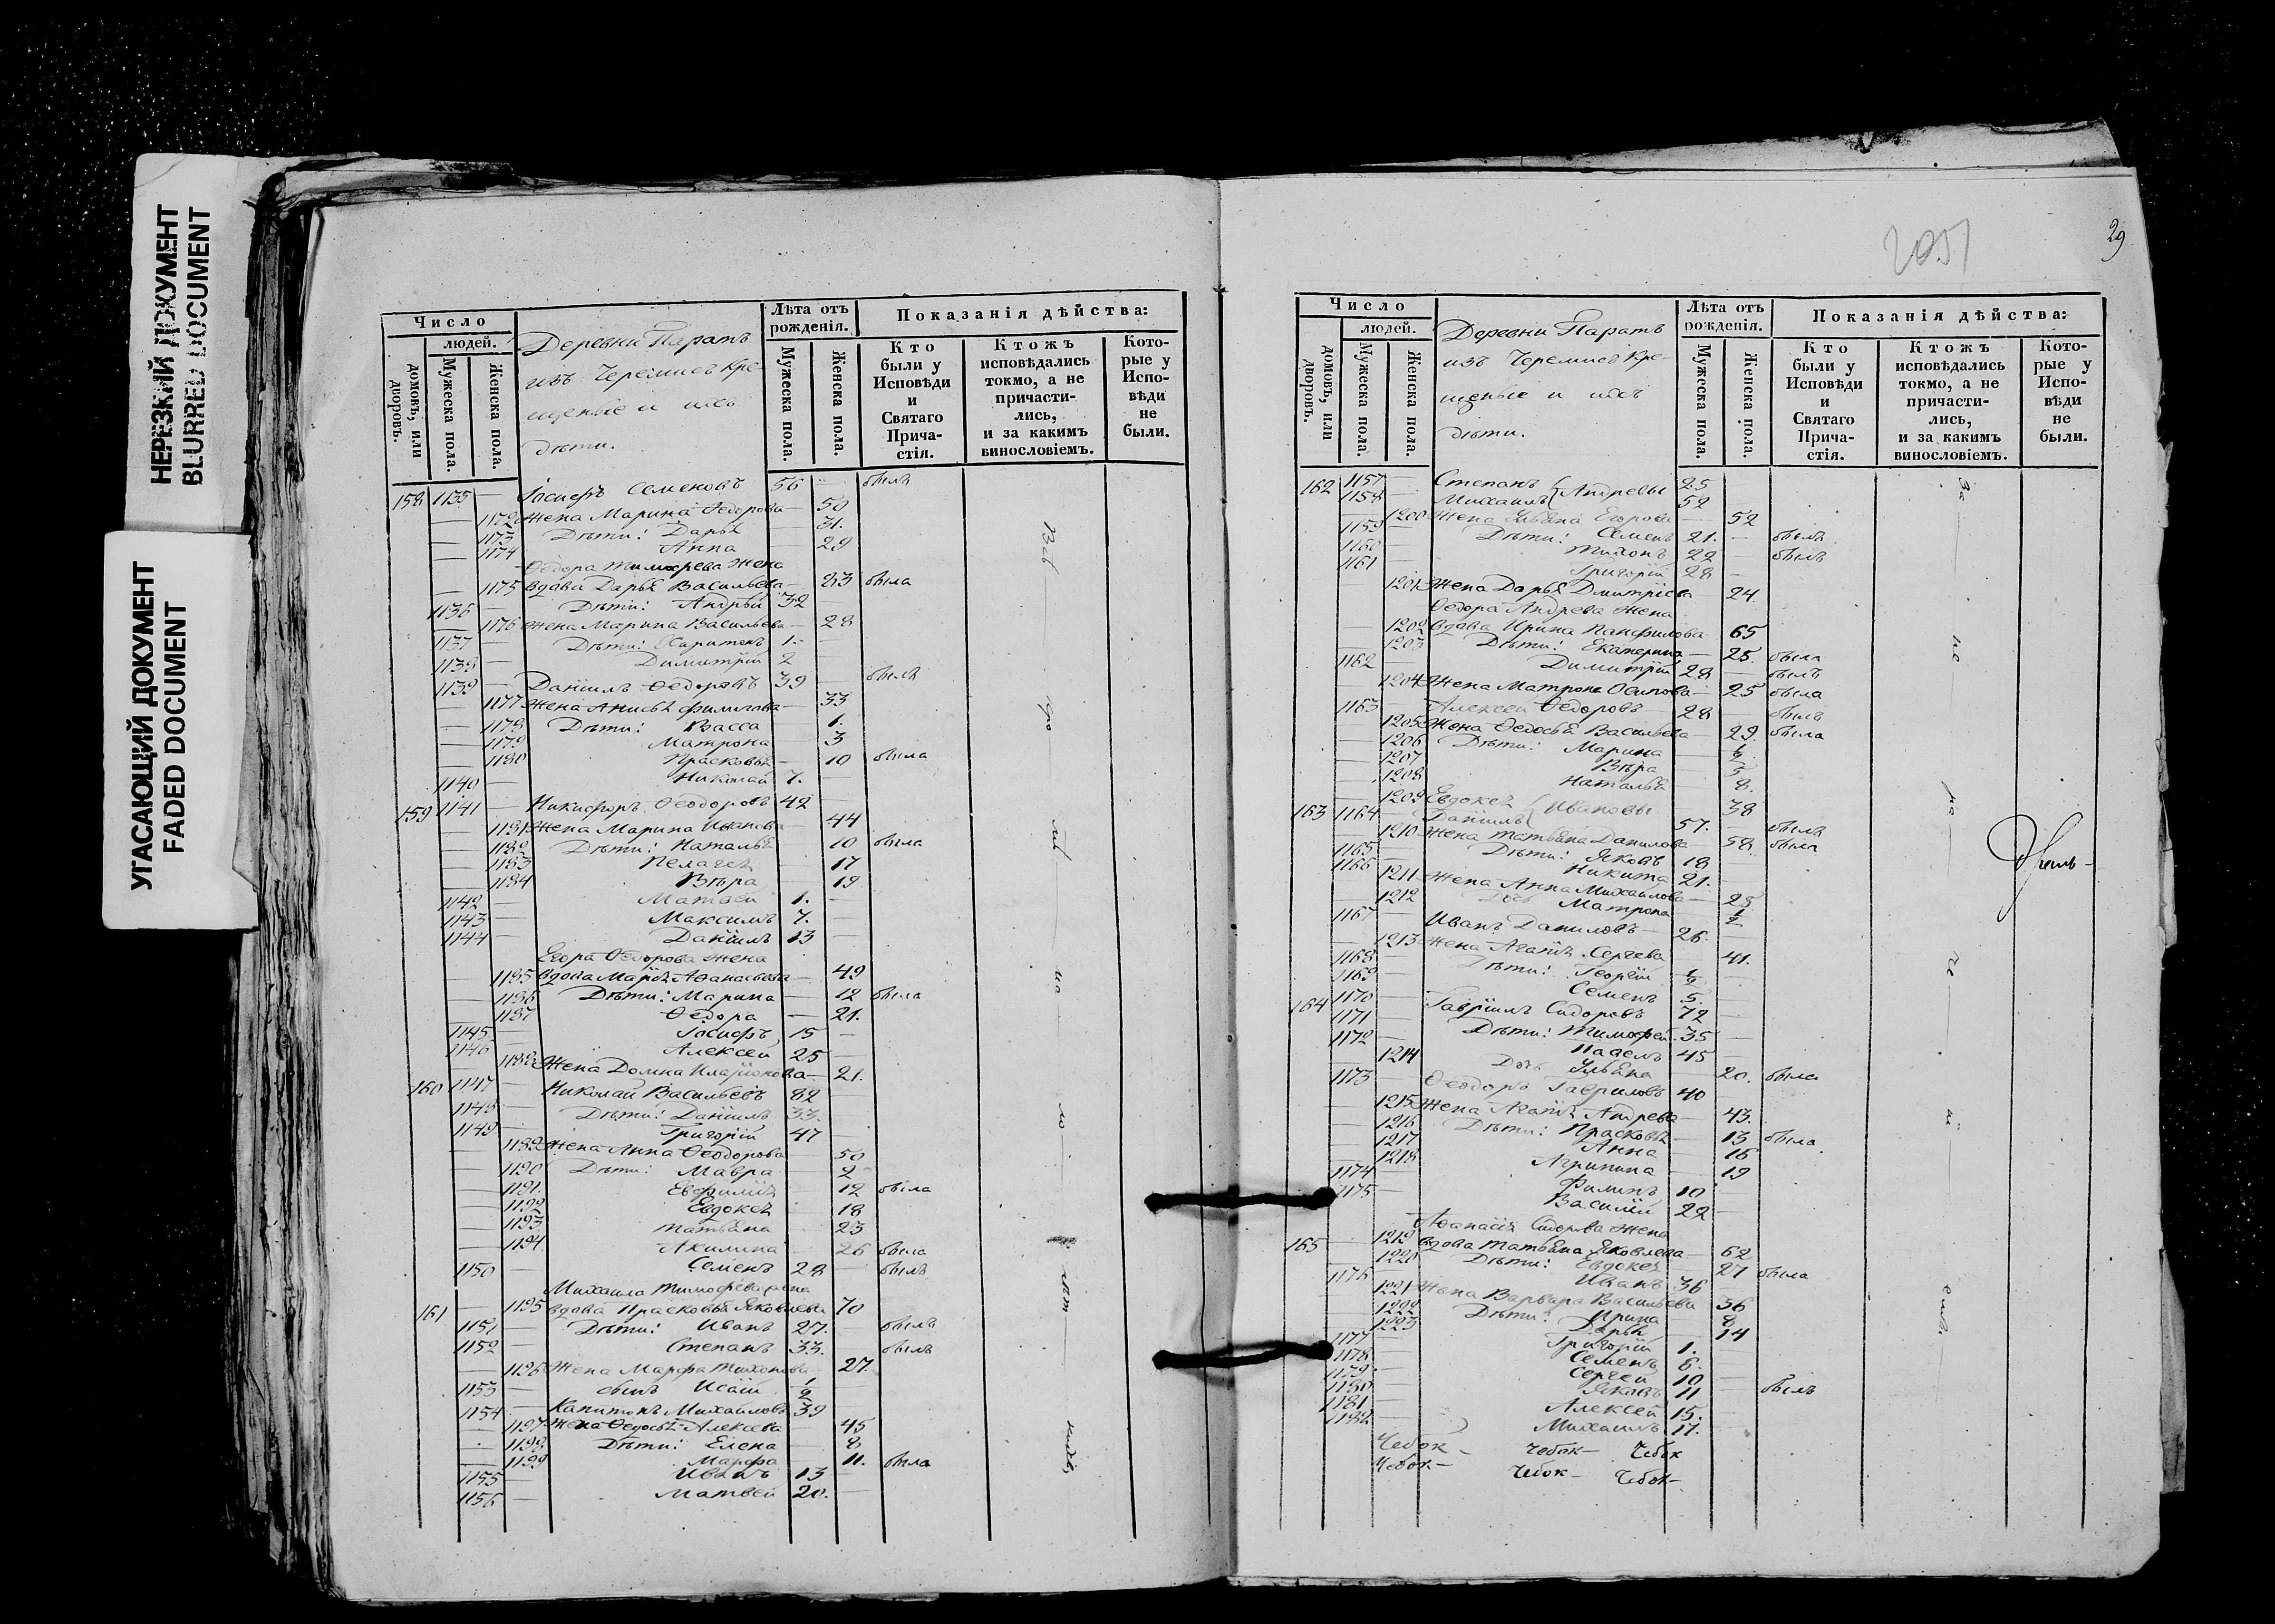 НЕРЕЗКИЙ ДОКУМЕНТ
BLURRED DOCUMENT
УГАСАЮЩИЙ ДОКУМЕНТ
FADED DOCUMENT
Число
людей.
домовъ, или дворовъ.
Мужеска пола.
Женска пола.
Деревни Паратъ
изъ Черемисъ кре-
щеныіе и ихъ
дѣти.
Лѣта отъ рожденія.
Мужеска пола.
Женска пола.
Показанія дѣйства:
Кто были у Исповѣди и Святаго Прича-стія.
Ктожъ исповѣдались токмо, а не причасти-лись, и за какимъ винословіемъ.
Кото-рые у Испо-вѣди не были.
158 1135 — Іосифъ Семеновъ 56 — былъ
— 1172 Жена Марина Ѳедорова — 50
— 1173 Дѣти: Дарья — 31.
— 1174 Анна — 29
Ѳедора Тимофѣева жена
— 1175 вдова Дарья Васильева — 83 была
1136 — Дѣти: Андрей 32
— 1176 жена Марина Васильева — 28
1137 — Дѣти: Харитонъ 1. —
1138 — Димитрій 2 —
1139 — Даніилъ Ѳедоровъ 39 — былъ
— 1177 Жена Анисья Филипова — 33
— 1178 Дѣти: Васса 1.
— 1179 Матрона 3
— 1180 Прасковья — 10 была
1140 — Николай 7. —
159 1141 — Никифоръ Ѳеодоровъ 42 —
— 1181 Жена Марина Иванова 44
— 1182 Дѣти: Наталья 10 была
— 1183 Пелагея 17
— 1184 Вѣра 19
1142 — Матвей 1. —
1143 — Максимъ 7. —
1144 — Даніилъ 13 —
Егора Ѳедорова жена
— 1185 вдова Марія Аѳанасьева — 49
— 1186 Дѣти: Марина — 12 была
— 1187 Ѳедора — 21.
1145 — Іосифъ 15 —
1146 — Алексей 25 —
1188 Жена Домна Иларіонова — 21.
160 1147 — Николай Васильевъ 82 —
1148 — Дѣти: Даніилъ 33. —
1149 — Григорій 47
— 1189 Жена Анна Ѳеодорова 50
— 1190 Дѣти: Мавра — 2
— 1191. Евфимія 12 была
— 1192 Евдокея 18
— 1193 Татьяна 23
— 1194 Акилина — 26 была
1150 — Семенъ 28 — былъ
Михаила Тимофѣева жена
161 — 1195 вдова Прасковья Яковлева 70
1151 — Дѣти: Иванъ 27. — былъ
1152 — Степанъ 33. былъ
— 1196 Жена Марфа Тихонова 27.
1153 — сынъ Исаій 1/2
1154 — Капитонъ Михайловъ 39
— 1197 Жена Ѳедосья Алексеева — 45
1198 Дѣти: Елена 8
— 1199 Марфа 11. была
1155 — Иванъ 13 —
1156 — Матвей 20. —
29
Число
людей.
домовъ, или дворовъ.
Мужеска пола.
Женска пола.
Деревни Паратъ
изъ Черемисъ кре-
щеныіе и ихъ
дѣти.
Лѣта отъ рожденія.
Мужеска пола.
Женска пола.
Показанія дѣйства:
Кто были у Исповѣди и Святаго Прича-стія.
Ктожъ исповѣдались токмо, а не причасти-лись, и за какимъ винословіемъ.
Кото-рые у Испо-вѣди не были.
162 1157 — Степанъ 25
1158 — Михаилъ Андреевы 52
— 1200 Жена Ульяна Егорова — 52
1159 — Дѣти: Семенъ 21. — былъ
1160 — Тихонъ 22 — былъ
1161 — Григорій 28 —
1201 Жена Дарья Дмитріева — 24.
Ѳедора Андреева жена
— 1202 вдова Ирина Панфилова 65
1203 Дѣти: Екатерина — 25. была
1162 Димитрій 28 — былъ
1204 Жена Матрона Осипова — 25 была
1163 — Алексей Ѳедоровъ 28 — былъ
— 1205 Жена Ѳедосья Васильева — 29 была
— 1206 Дѣти: Марина 1/2
— 1207 Вѣра 5
— 1208 Наталья 8.
— 1209 Евдокея Ивановы 38
163 1164 — Даніилъ 57. — былъ
— 1210 Жена Татьяна Данилова 58 была
1165 — Дѣти: Яковъ 18 —
1166 — Никита 21. —
1211 Жена Анна Михайлова — 25
1212 Дочь Матрона 1/2
1167 — Иванъ Даниловъ 26. —
— 1213 Жена Агафія Сергеева 41.
1168 — Дѣти: Георгій 1/2 —
1169 — Семенъ 5. —
164 1170 — Гавріилъ Сидоровъ 72 —
1171 — Дѣти: Тимофей 35 —
1172 — Павелъ 45 —
1214 Дочь Ульяна 20. была
1173 — Ѳеодоръ Гавриловъ 40
— 1215 Жена Агафія Андреева — 43.
— 1216 Дѣти: Прасковья 13 была
— 1217 Анна 16
— 1218 Агрипина 19
1174 — Филипъ 10 —
1175 — Василій 22 —
Аѳанасія Сидорова жена
165 — 1219 вдова Татьяна Яковлева — 62
— 1220 Дѣти: Евдокея — 27 была
1176 — Иванъ 36
— 1221 Жена Варвара Васильева 36
1222 Дѣти: Ирина 8
1223 Дарья 14
1177 — Григорій 1. —
1178 — Семенъ 6. —
1179. — Сергей 10 —
1180 — Яковъ 11 — былъ
1181 — Алексей 15. —
1182 — Михаилъ 17. —
Чебок- Чебок- Чебок
Чебок- Чебок- Чебок-